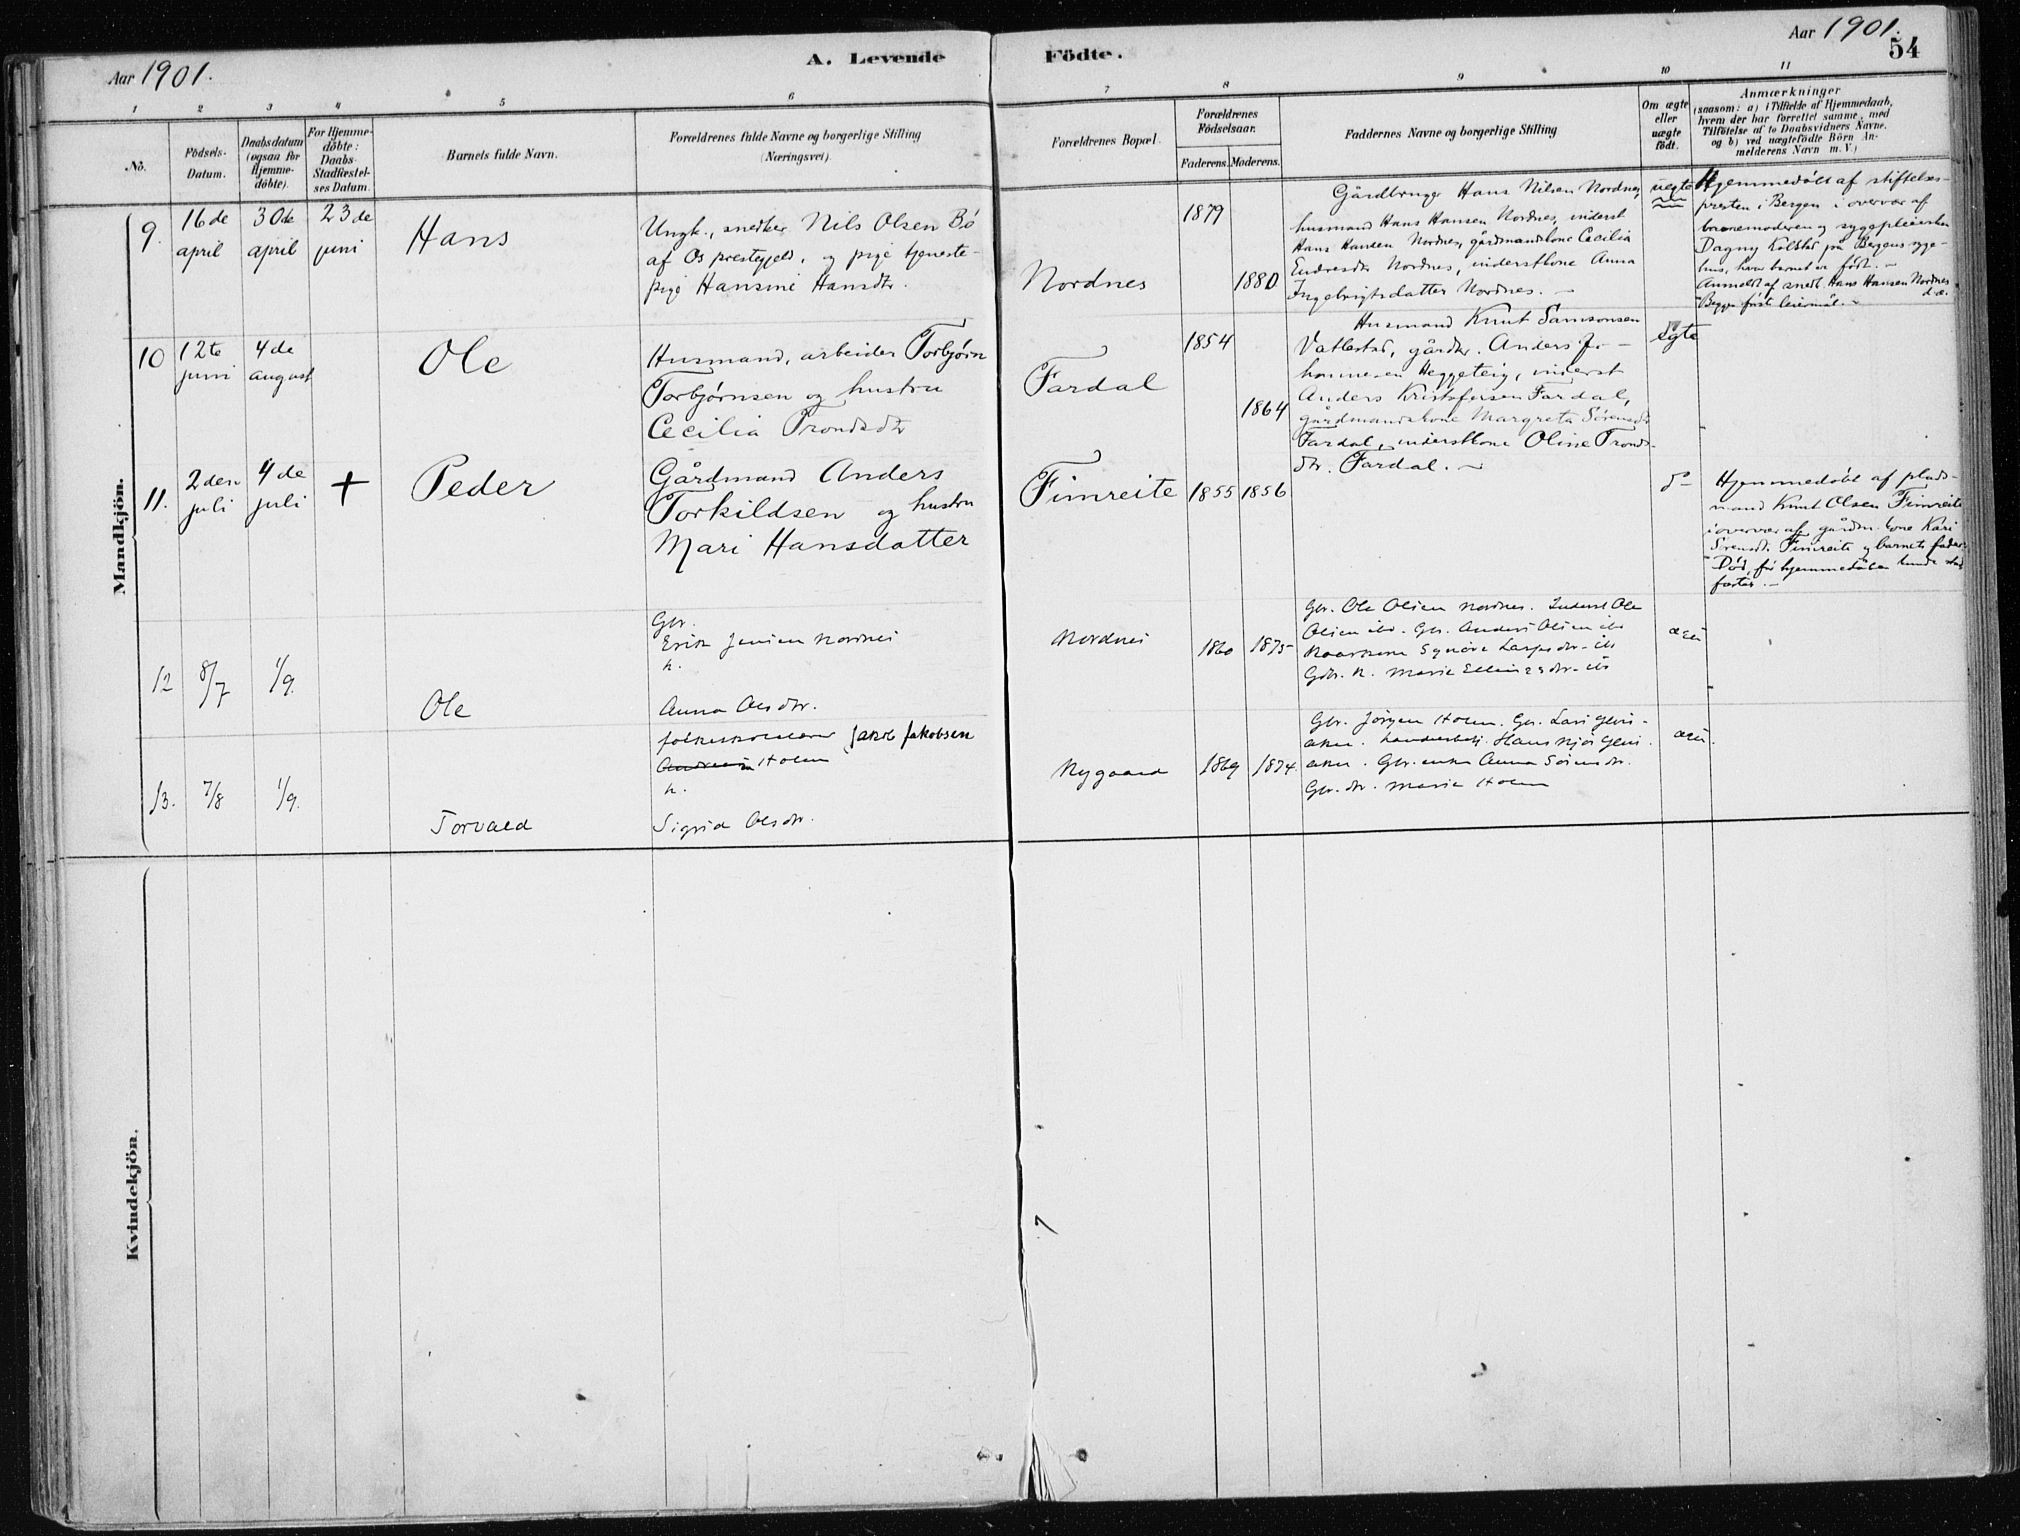 Aar 1901.
A. Levende
Födte.
Aar 1901.
54
1 2 3 4 5 6 7 8 9 10 11
No.
Födsels-
Datum.
Daabsdatum
(ogsaa for
Hjemme-
döbte).
For Hjemme-
döbte:
Daabs-
Stadfæstel-
ses Datum.
Barnets fulde Navn.
Forældrenes fulde Navne og borgerlige Stilling
(Næringsvei).
Forældrenes Bopæl.
Forældrenes
Födselsaar.
Faderens. Moderens.
Faddernes Navne og borgerlige Stilling
Om ægte
eller
uægte
födt.
Anmærkninger
(saasom: a) i Tilfælde af Hjemmedaab,
hvem der har forrettet samme, med
Tilföielse af to Daabsvidners Navne,
og b) ved uægtefödte Börn An-
melderens Navn m. V.)
Mandkjön.
9.
16de
april
30de
april
23de
juni
Hans
Ungk., snedker Nils Olsen Bö
af Os prestegjeld, og pige tjeneste-
pige Hansine Hansdtr.
Nordnes
1879
1880
Gårdbruger Hans Nilsen Nordnes,
husmand Hans Hansen Nordnes, inderst
Hans Hansen Nordnes, gårdmandskone Cecilia
Endresdtr Nordnes, inderstkone Anna
Ingebrigtsdatter Nordnes. —
uegte
Hjemmedöbt af stiftelses-
presten i Bergen i overvær af
barnemoderen og sygepleiersken
Dagny Kolstad på Bergens syge-
hus, hvor barnet er født. —
Anmeldt af snedk. Hans Hansen Nordnes
Begges første leiermål. —
10
12te
juni
4de
august
Ole
Husmand, arbeider Torbjørn
Torbjørnsen og hustru
Cecilia Trondsdtr
Fardal
1854
1864
Husmand Knut Samsonsen
Vatlestad, gårdbr. Anders Jo-
hannesen Heggeteig, inderst
Anders Kristofersen Fardal,
gårdmandskone Margreta Sörensdtr
Fardal, inderstkone Oline Tronds-
dtr. Fardal. —
Egte
11.
2den
juli
4de
juli
+
Peder
Gårdmand Anders
Torkildsen og hustru
Mari Hansdatter
Fimreite
1855 1856
Hjemmedöbt af plads-
mand Knut Olsen Fimreite
i overvær af gårdm.kone Kari
Sörensdtr. Fimreite og barnets fader.
Död, før hjemmedåben kunde stad-
fæstes. —
12
8/7
1/9.
Ole
Gbr.
Erik Jensen Nordnes
h.
Anna Olsdtr.
Nordnes
1860 1875
Gbr. Ole Olsen Nordnes. Inderst Ole
Olsen ibd. Gbr. Anders Olsen ibd
Gbr. k. Marie
13.
7/8
1/9.
Torvald
Jakob Jakobsen
Holm
h.
Sigrid Olsdtr.
Nygaard
1869 1874.
Gbr. Jörgen Holm. Gbr. Lars
Gbr. enke Anna Sörensdtr.
Gbr. dtr. Marie Holm
Kvindekjön.